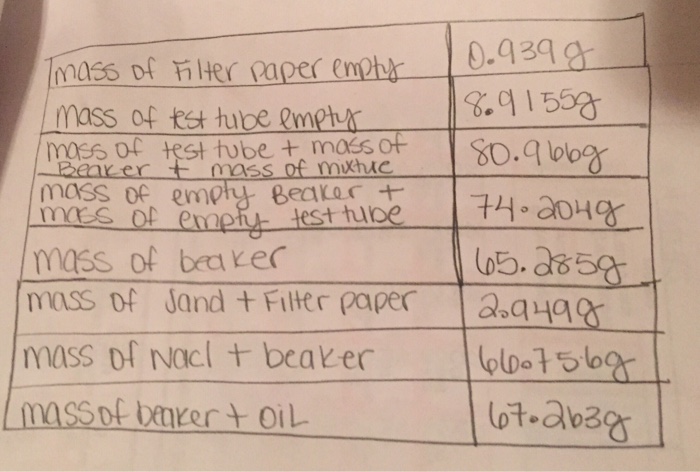 mass of Filter paper empty 0.939g
mass of test tube empty 8.9155g
mass of test tube + mass of
Beaker + mass of mixtue 80.966g
mass of empty Beaker +
mass of empty test tube 74.204g
mass of beaker 65.285g
mass of sand + Filter paper 2.949g
mass of Nacl + beaker 66.756g
mass of beaker + OIL 67.263g